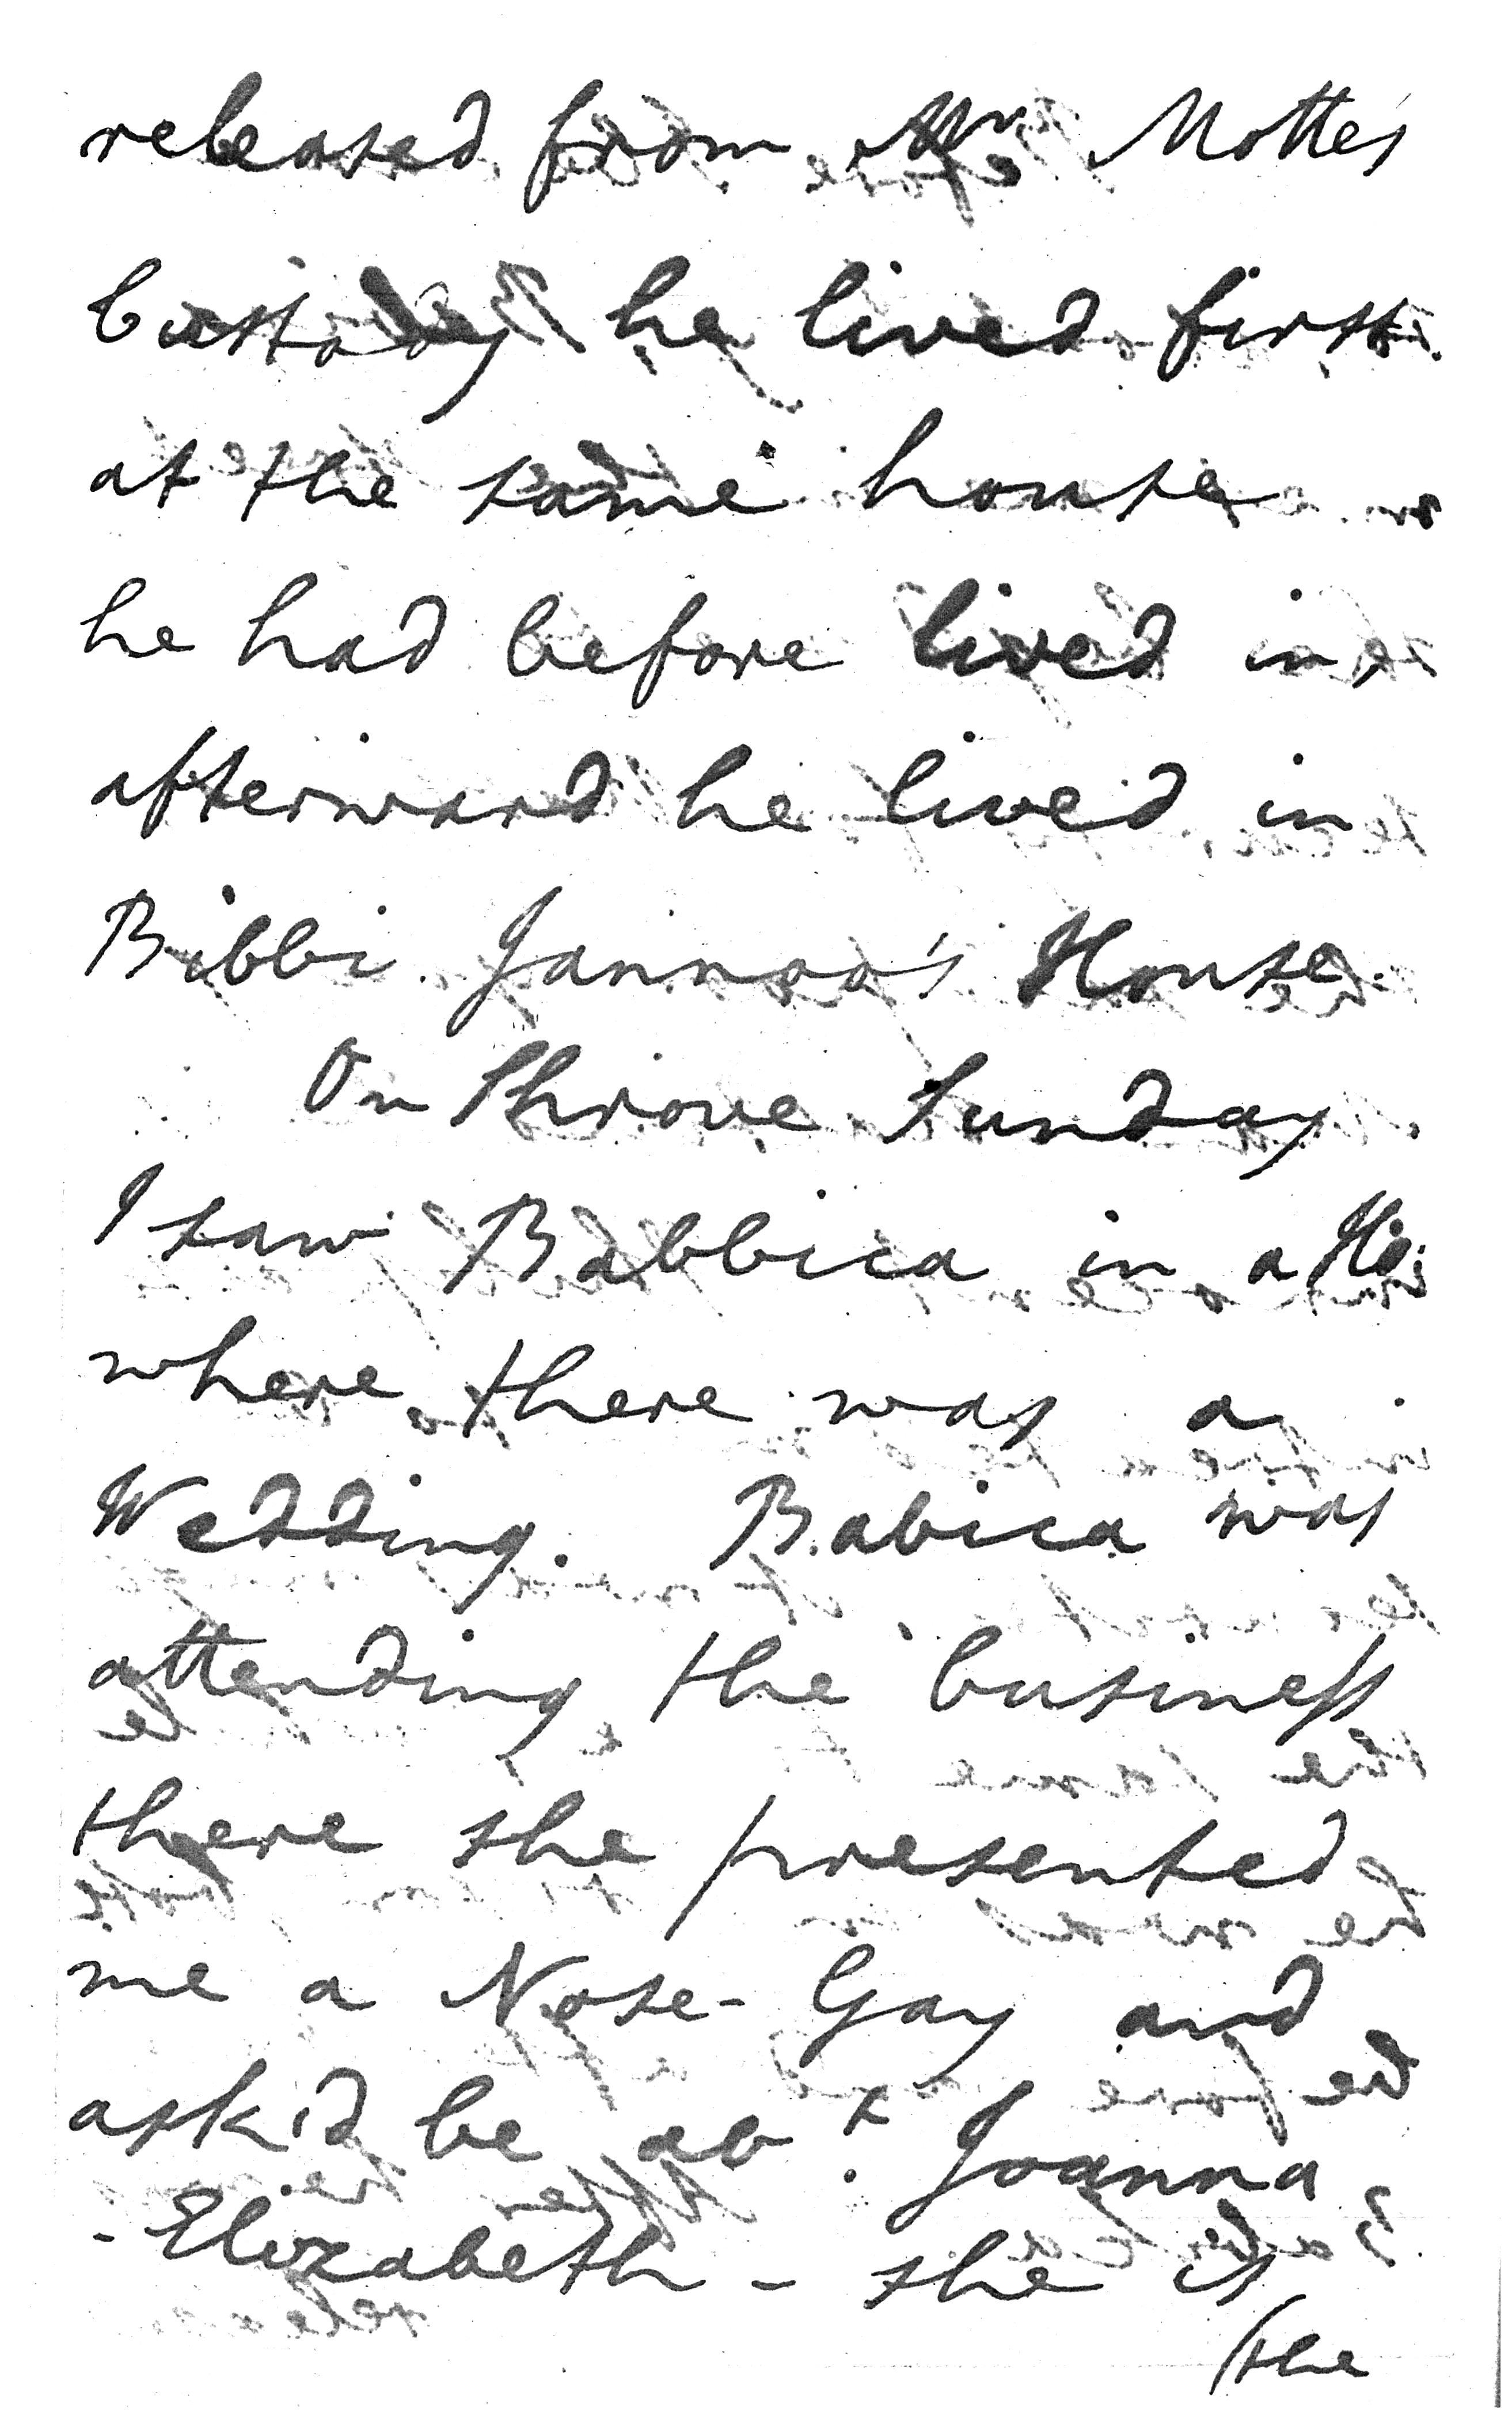 released from Mr. Mottes
Custody he lived first
at the same house as
he had before lived in,
afterward he lived in
Bibbi Jannoo's House
On Shrove Sunday
I saw Babbica in a Ho:
where there was a
Wedding. Babica was
attending the business
there she presented
me a Nose-Gay and
ask'd be abt. Joanna
-Elizabeth - she is
(the